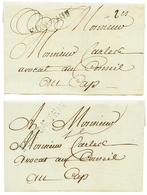 Monsieur
Monsieur Carles
avocat au Conseil
au Cap
A Monsieur
Monsieur Carles
avocat au Conseil
au Cap